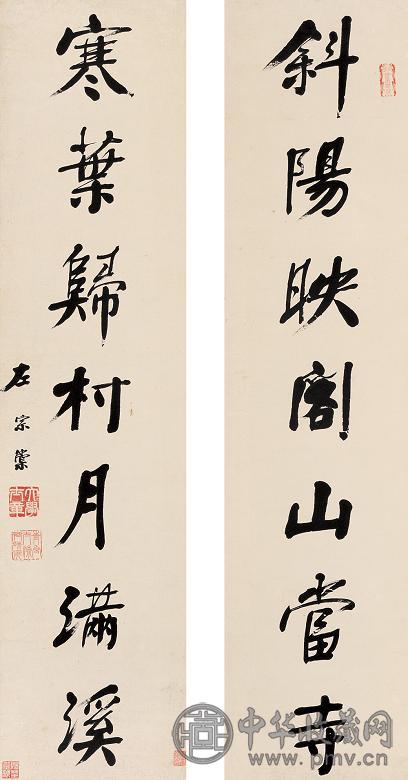 斜陽映閣山當寺
寒葉歸村月滿溪
左宗棠
中华收藏网
www.pmv.cn.com